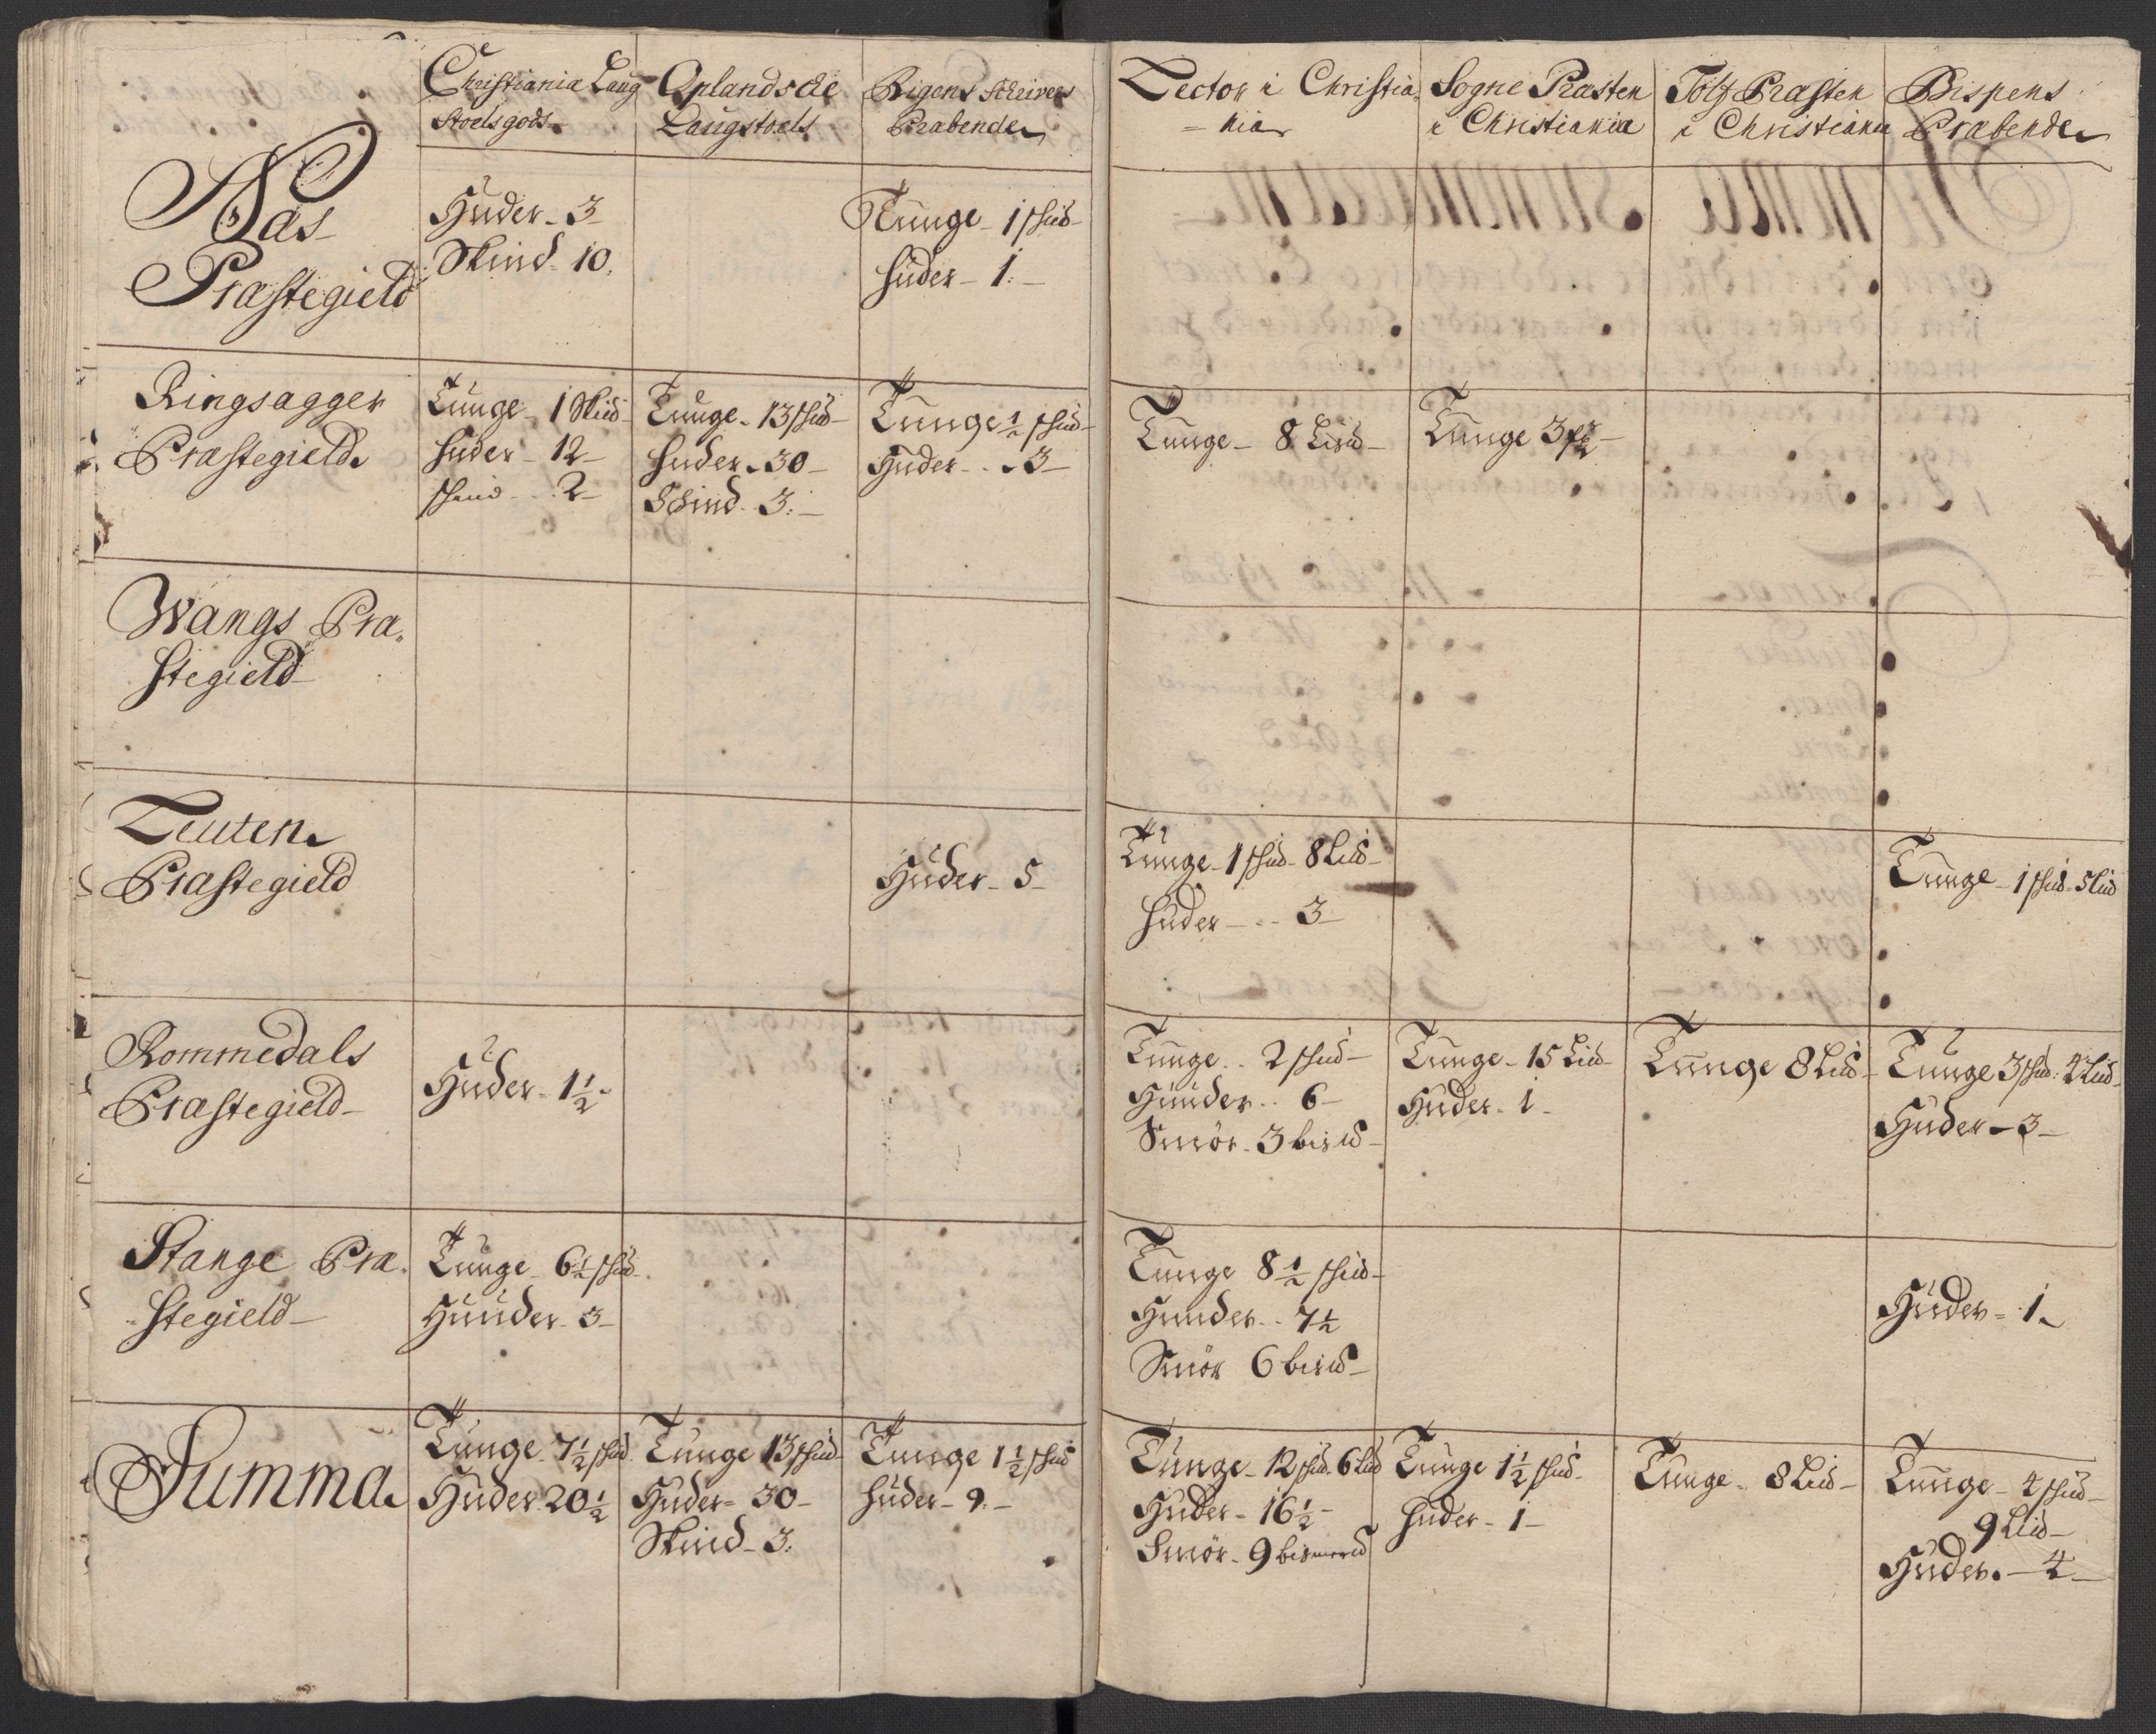 Christiania Laug
Stoelsgods
Oplandsche
Laugstoels
Rigens Schrivers
Præbende
Lector i Christia
= nia
Sogne Præsten
i Christiania
Tolf Præsten
i Christiania
Bispens
Præbende
Næs
Præstegield
Huder - 3
Skind - 10
Tunge - 1 skud
Huder - 1
Ringsagger
Præstegield
Tunge - 1 Skud
Huder - 12
skind - 2
Tunge - 13 skud
Huder - 30
Schind - 3
Tunge ½ skud
Huder - 3
Tunge - 8 Lisd
Tunge
Wangs Præ
stegield
Leuten
Præstegield
Huder - 5
Tunge - 1 skud - 8 Lud
Huder - 3
Tunge - 1 skud - 5 Lud
Rommedals
Præstegield
Huder - 1½
Tunge - 2 skud
Hunder - 6
Smör - 3 bisud
Tunge - 15 Lud
Huder - 1
Tunge 8 Lud
Tunge 3 skud: 4 Lud
Huder - 3
Stange Præ
stegield
Tunge - 6½ skud
Hunder - 3
Tunge 8½ skud
Hunder - 7½
Smör 6 bisud
Huder = 1
Summa
Tunge - 7½ skud
Huder 20½
Tunge 13 skud
Huder = 30
Skind - 3
Tunge 1½ skud
Huder - 9
Tunge - 12 skud 6 Lud
Huder - 16½
Smör - 9 bismerud
Tunge 1½ skud
Huder - 1
Tunge - 8 Lud
Tunge - 4 skud
9 Lud
Huder - 4